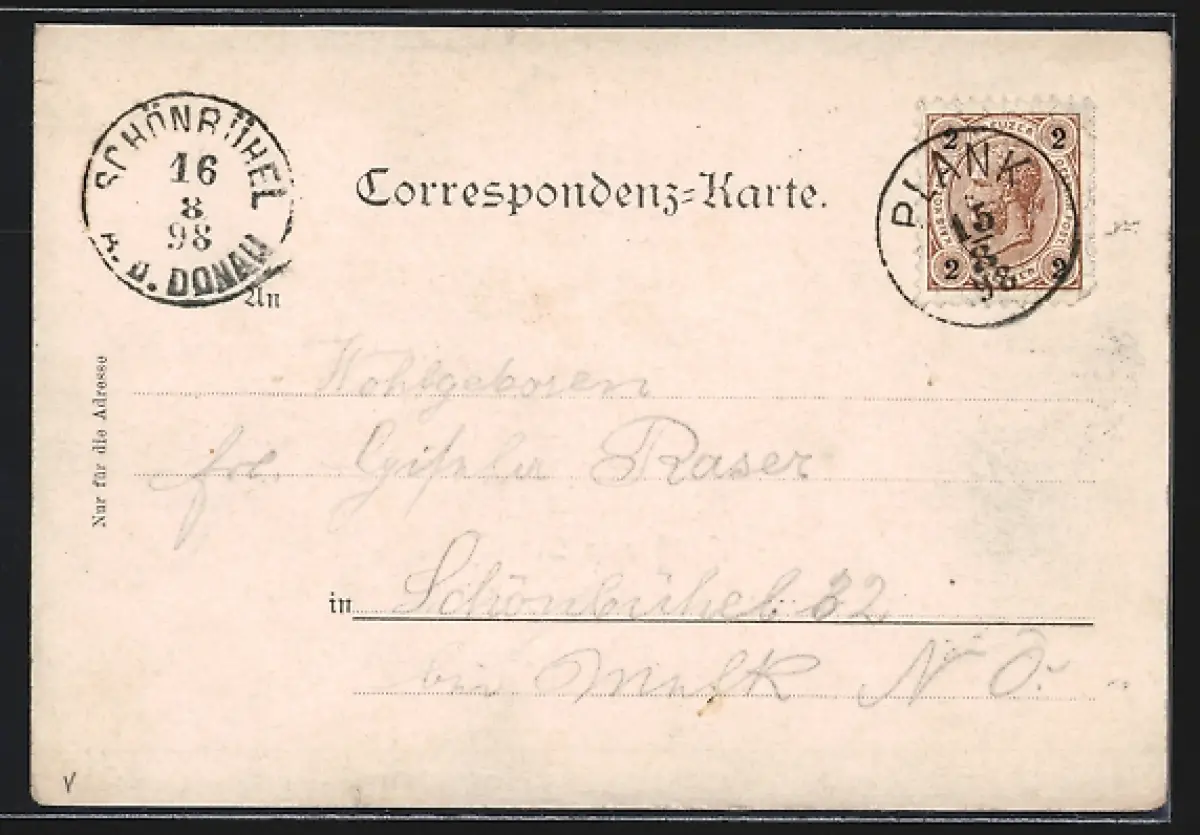 SCHÖNBÜHEL
16
8
98
A. D. DONAU
PLANK
15
8
98
2 2
2 2
Correspondenz=Karte.
An
Nur für die Adresse
Wohlgeboren
Raser
in Schönbühel 32
bei Melk N Ö.